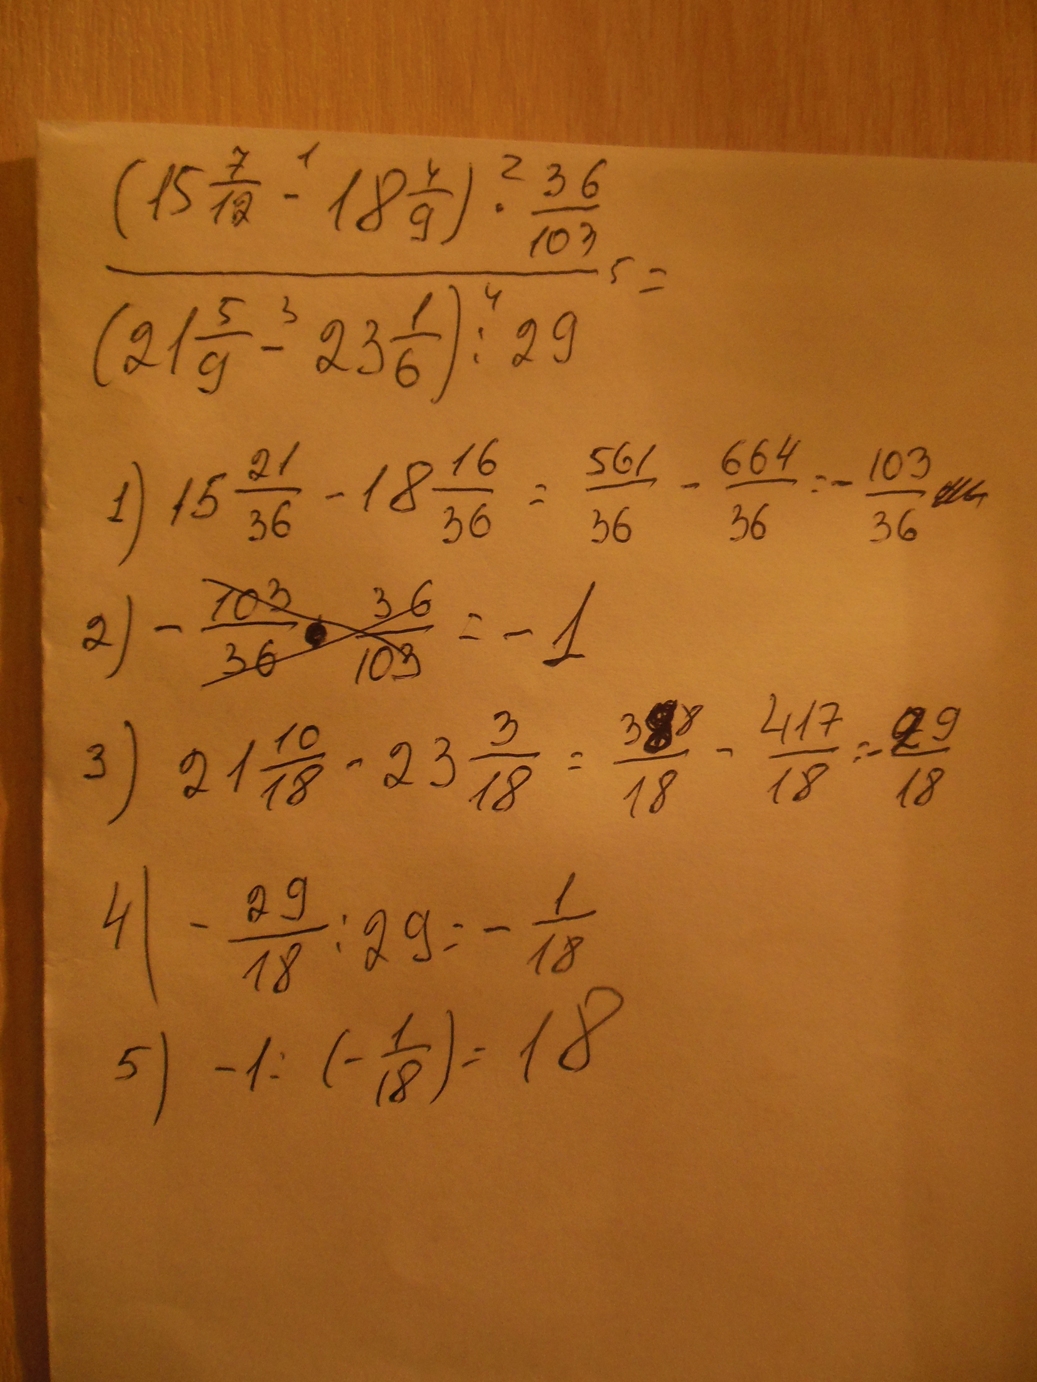 (15 7/12 -¹ 18 4/9) ·² 36/103
5 =
(21 5/9 -³ 23 1/6) :⁴ 29
1) 15 21/36 - 18 16/36 = 561/36 - 664/36 = - 103/36
2) - 103/36 · 36/103 = - 1
3) 21 10/18 - 23 3/18 = 388/18 - 417/18 = - 29/18
4) - 29/18 : 29 = - 1/18
5) -1 : (- 1/18) = 18